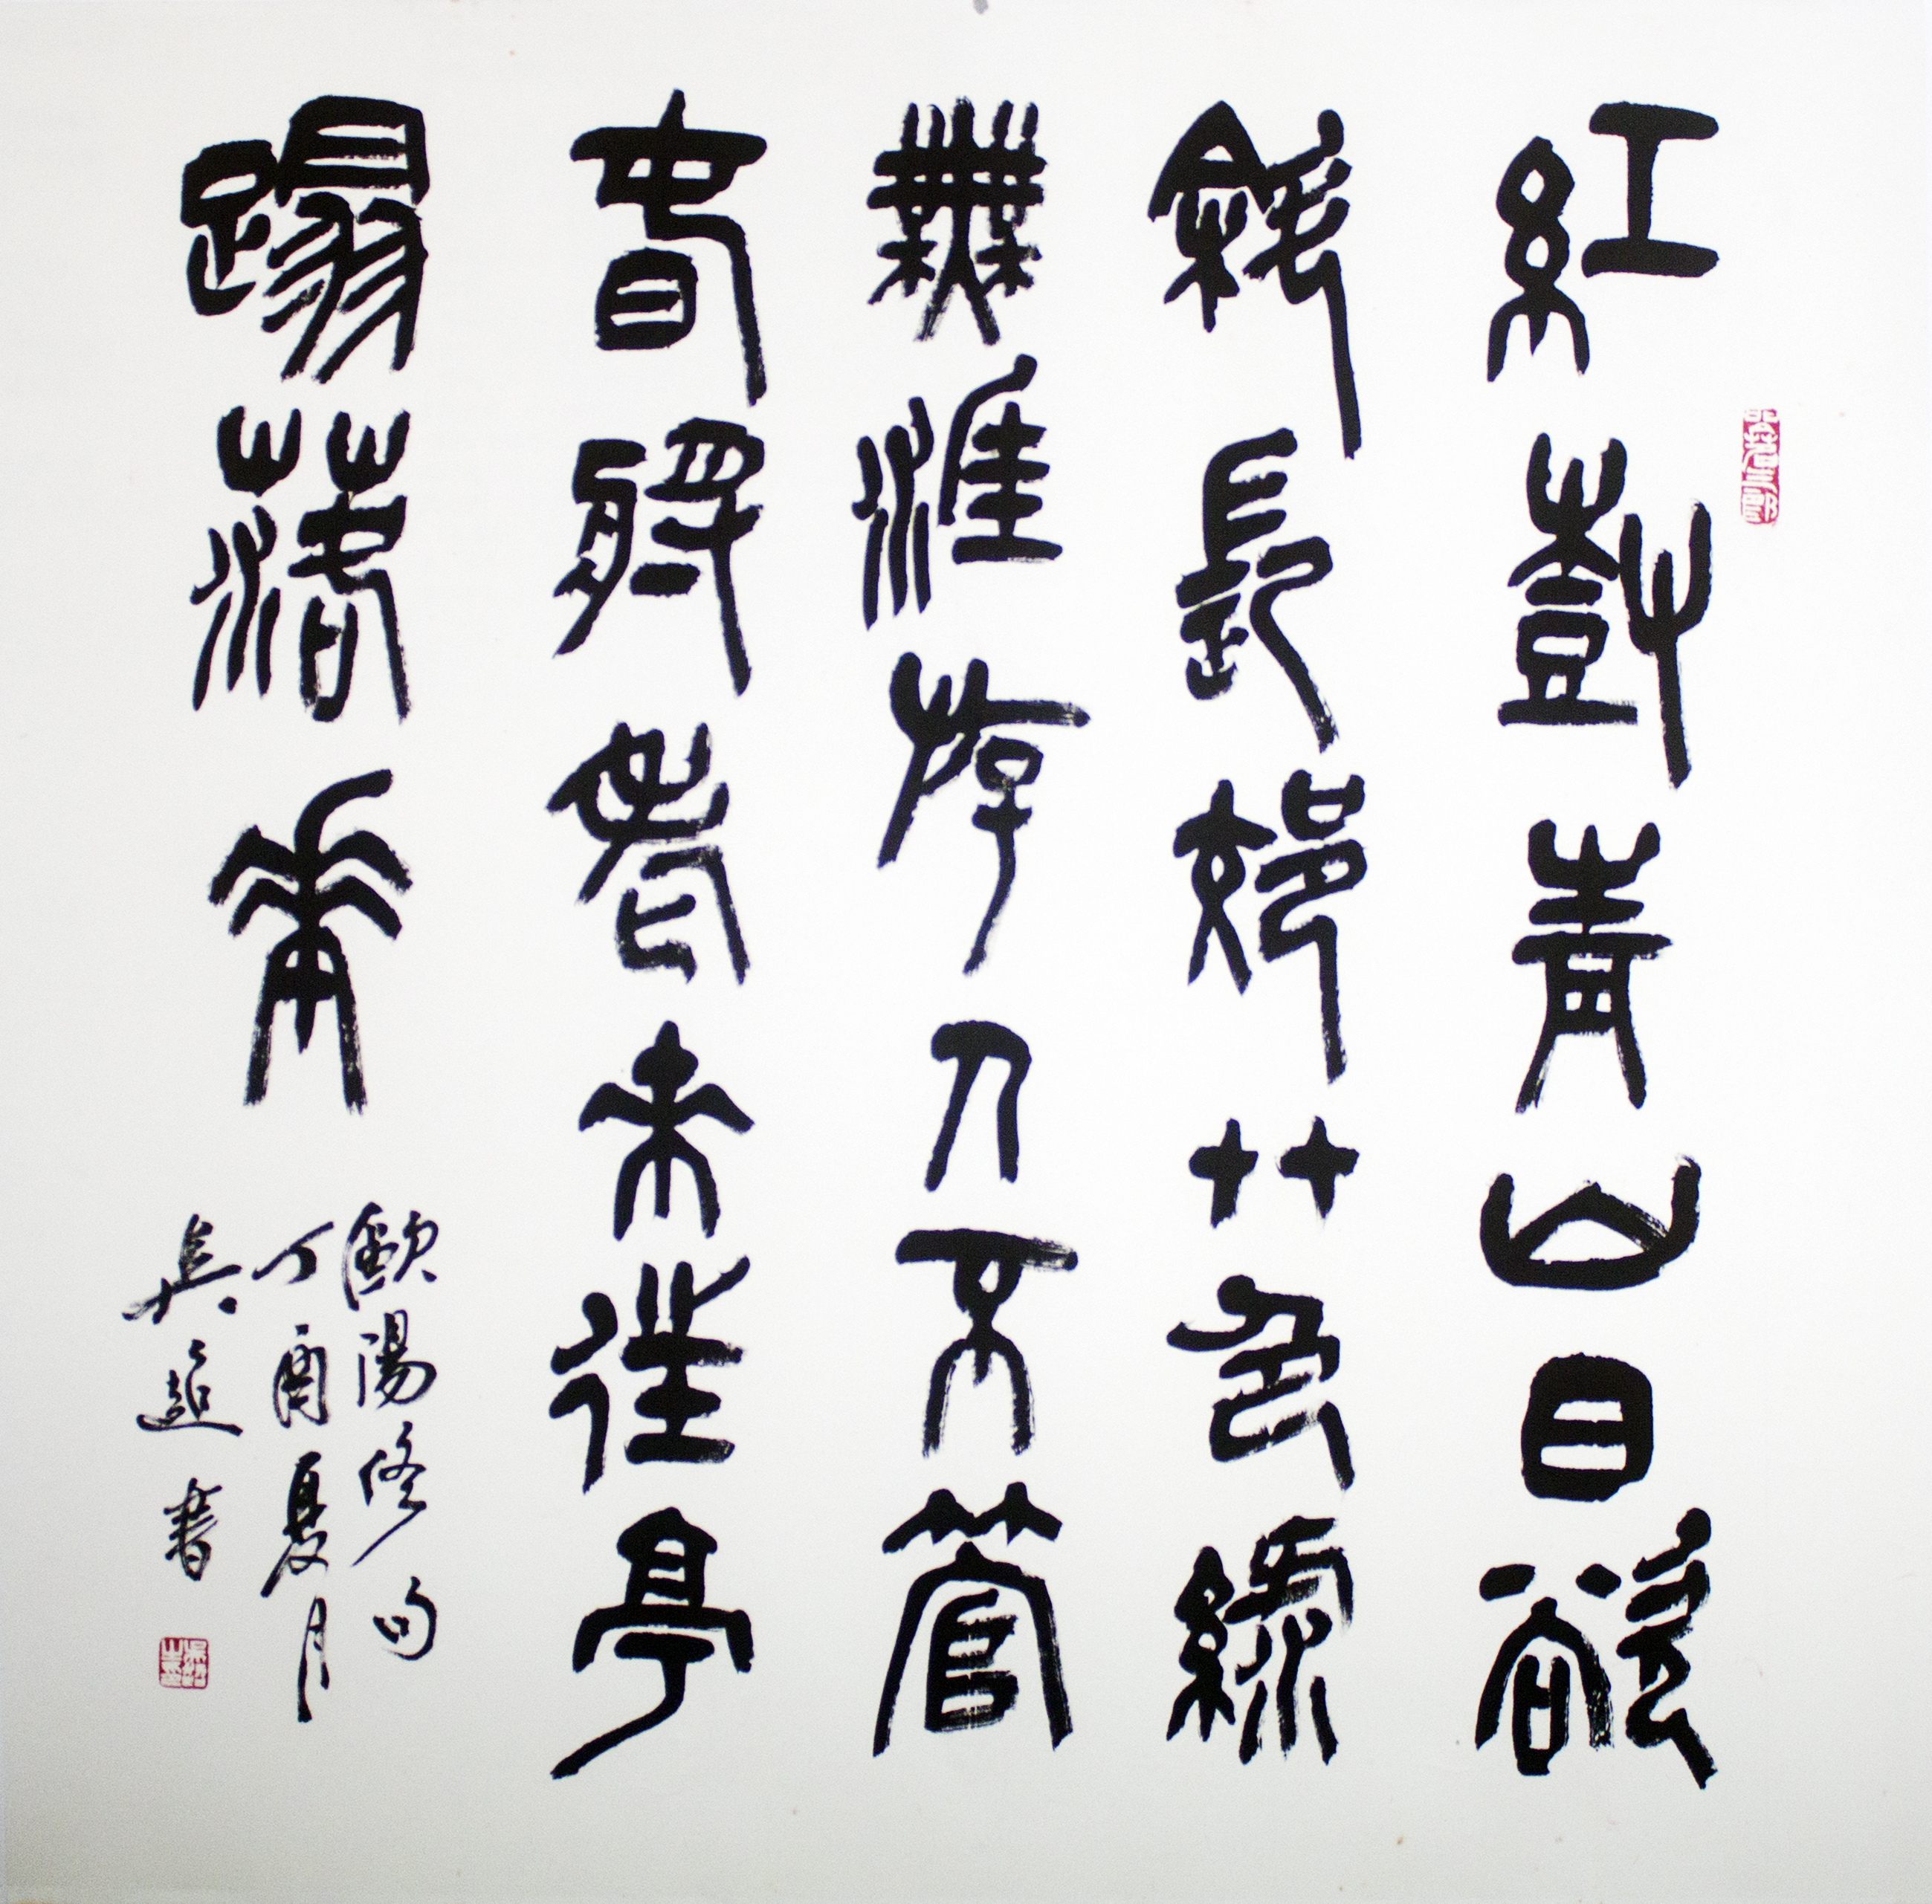 紅樹青山日欲
斜長郊艸色綠
無涯斿人不管
春將老來往亭
蹋落華
歐陽修句
丁酉夏月
吳 書